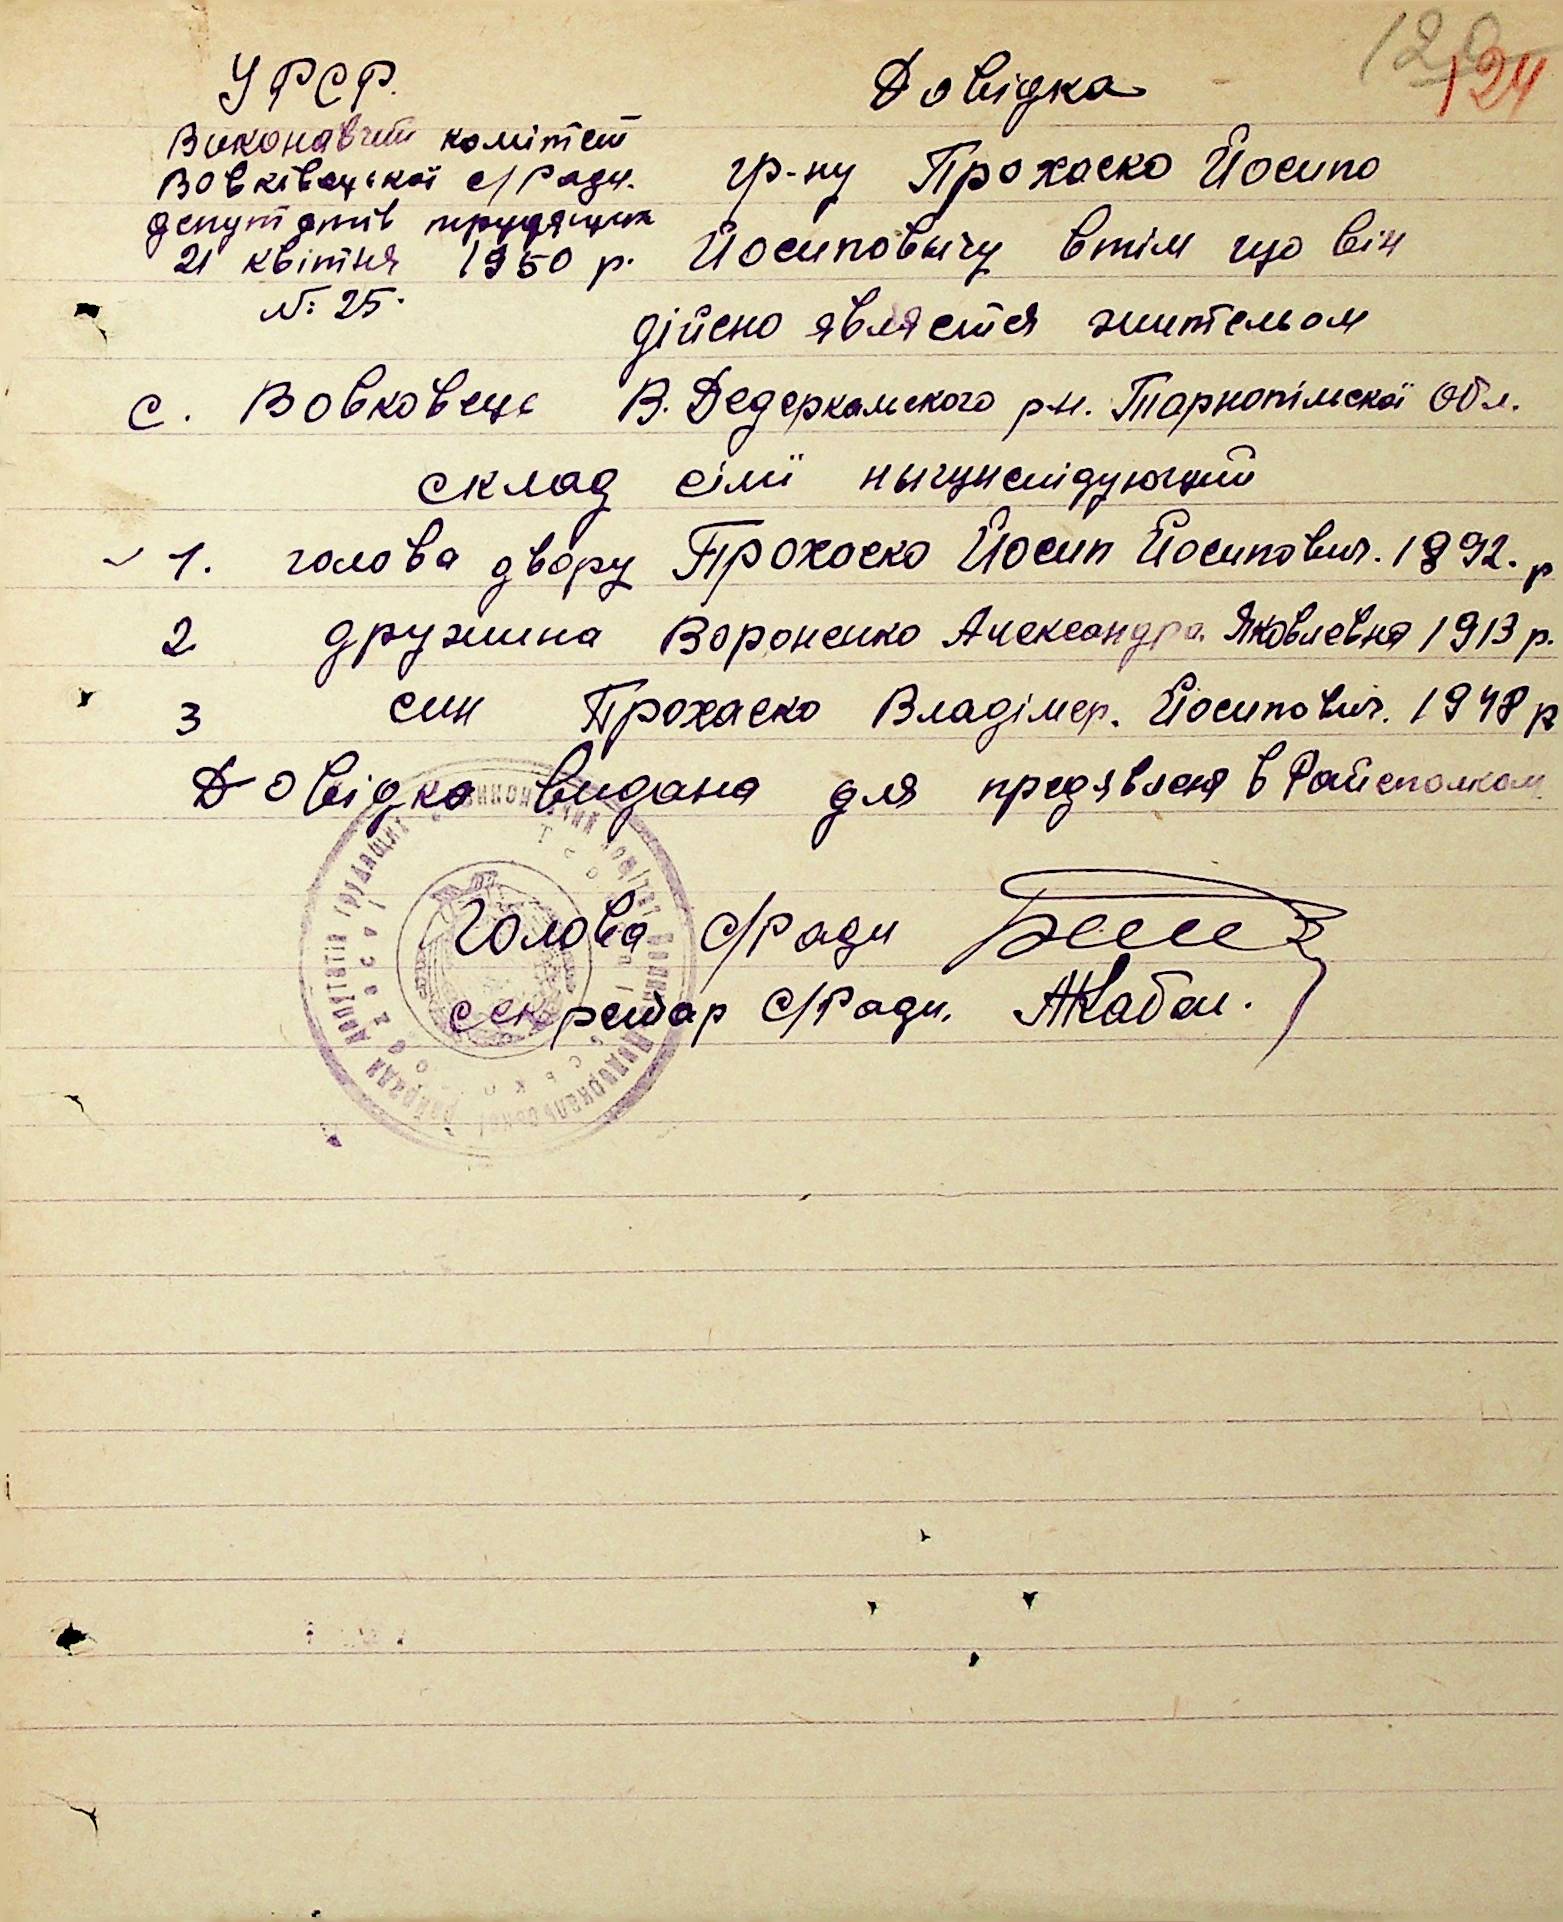 120
124
УРСР.
Виконавчий комітет
Вовківецької с/Ради.
депутатів трудящих
21 квітня 1950 р.
№: 25.
Довідка
гр-ну Прохаско Йосипо
Йосиповичу втім що він
дійсно является жительом
с. Вовковеце В. Дедеркамского р-н. Тарнопімскої Обл.
склад сімї нычнслідующий
1. голова двору Прохоско Йосип Йосипович. 1892. р
2 дружина Вороненко Александра Яковлевна 1913 р.
3 син Прохаско Владімер. Йосипович. 1948 р
Довідка видана для предявленя в Райсполком
Голова с/Ради
секретар с/Ради.